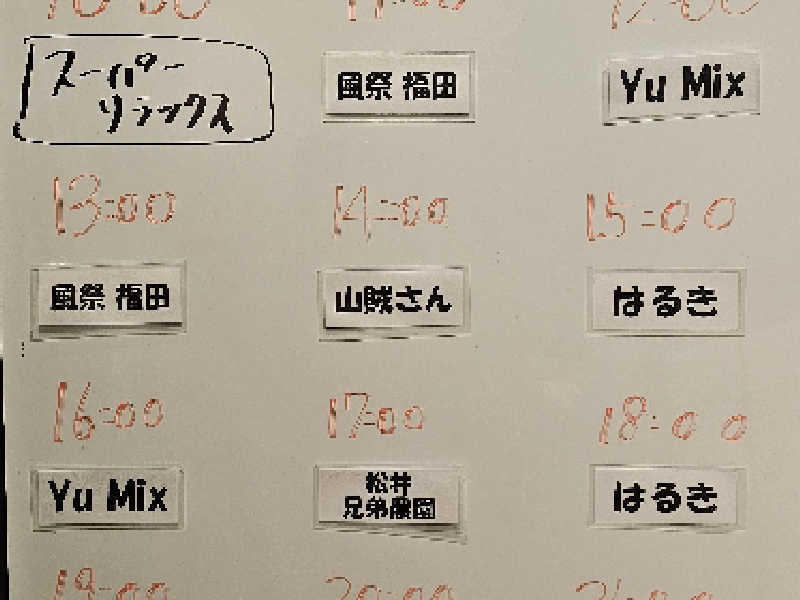 10:00 11:00 12:00
スーパー
リラックス
風祭 福田
Yu Mix
13:00 14:00 15:00
風祭 福田
山賊さん
はるき
16:00 17:00 18:00
Yu Mix
松井
兄弟農園
はるき
19:00 20:00 21:00